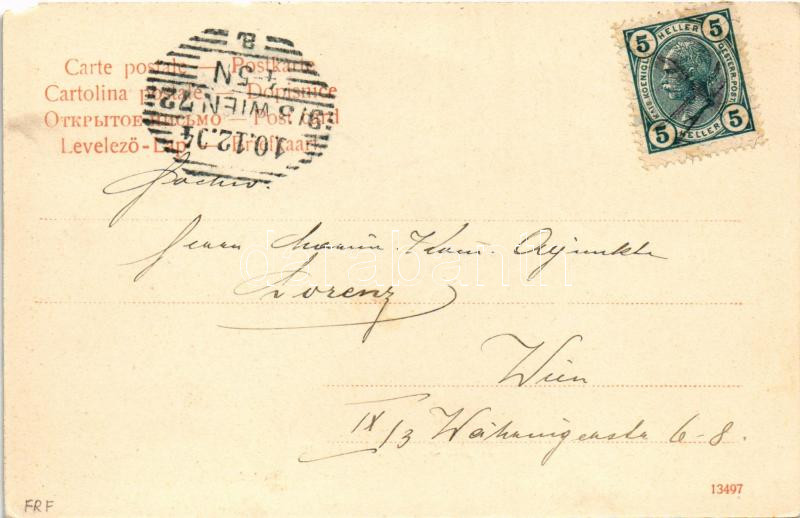 Carte postale — Postkarte
Cartolina postale — Dopisnice
Открытое письмо — Post card
Levelező-Lap — Briefkaart
8.
5 N
9/3 WIEN 72
10.12.04
5 HELLER 5
KAIS. KOENIGL. OESTERR. POST
5 HELLER 5
Hochw.
Herrn Marine-Kom. Adjunkte
Lorenz
Wien
IX/3 Währingerstr 6-8.
darabanth
13497
FRF